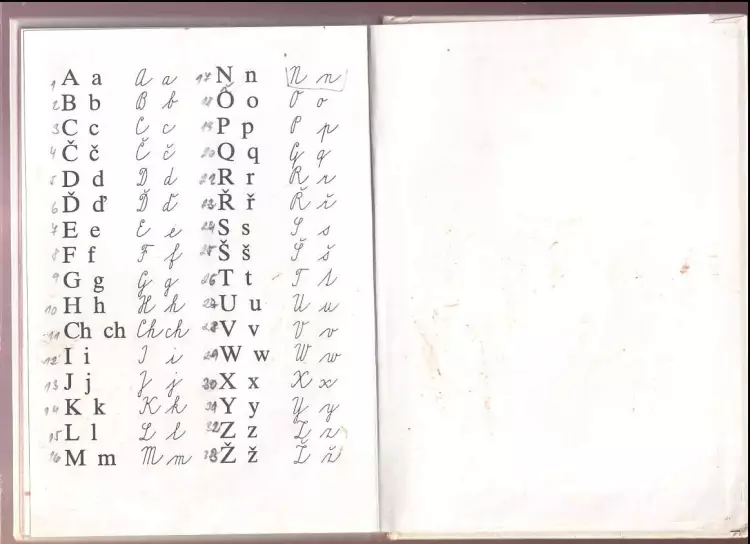 1 A a A a
2 B b B b
3 C c C c
4 Č č Č č
5 D d D d
6 Ď ď Ď ď
7 E e E e
8 F f F f
9 G g G g
10 H h H h
11 Ch ch Ch ch
12 I i I i
13 J j J j
14 K k K k
15 L l L l
16 M m M m
17 N n N n
18 O o O o
19 P p P p
20 Q q Q q
R r R r
Ř ř Ř ř
24 S s S s
25 Š š Š š
26 T t T t
27 U u U u
28 V v V v
29 W w W w
30 X x X x
31 Y y Y y
32 Z z Z z
33 Ž ž Ž ž